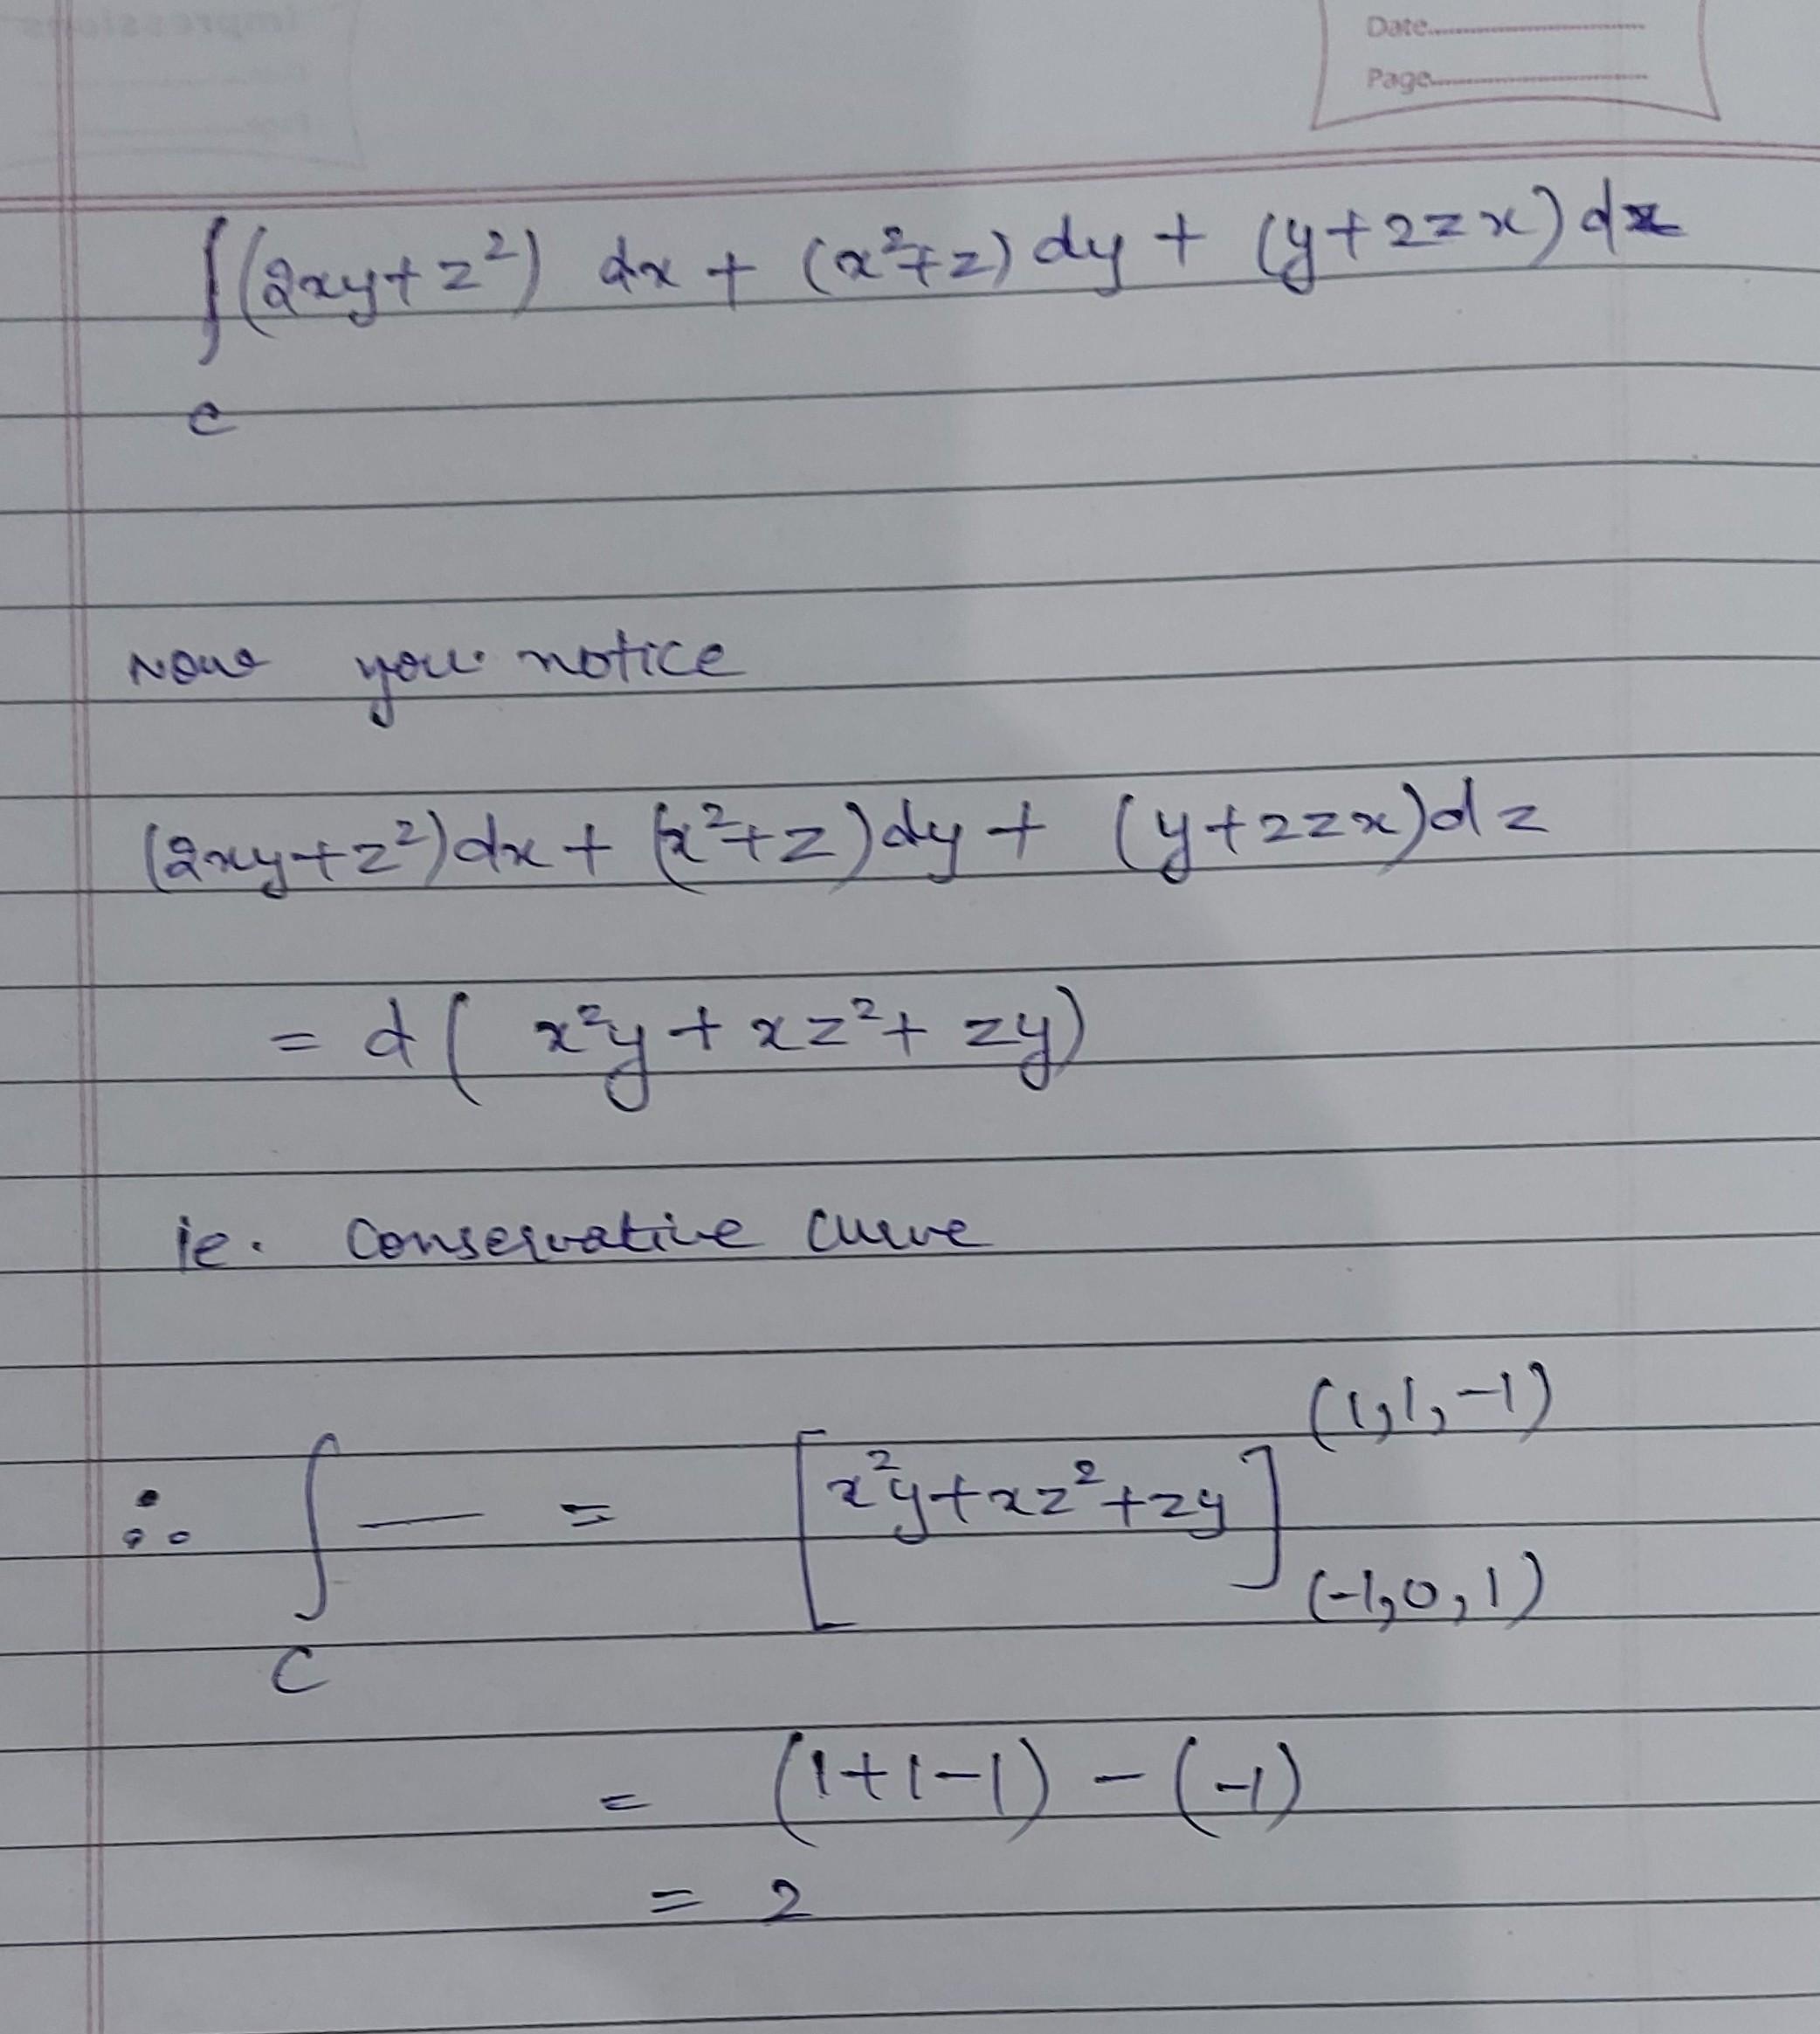 Date
Page
∫(2xy+z²) dx + (x²+z) dy + (y+2zx) dz
c
Now you notice
(2xy+z²)dx + (x²+z)dy + (y+2zx)dz
= d( x²y + xz² + zy)
ie. Conservative curve
(1,1,-1)
∴ ∫ — = [x²y+xz²+zy]
(-1,0,1)
C
= (1+1-1) - (-1)
= 2